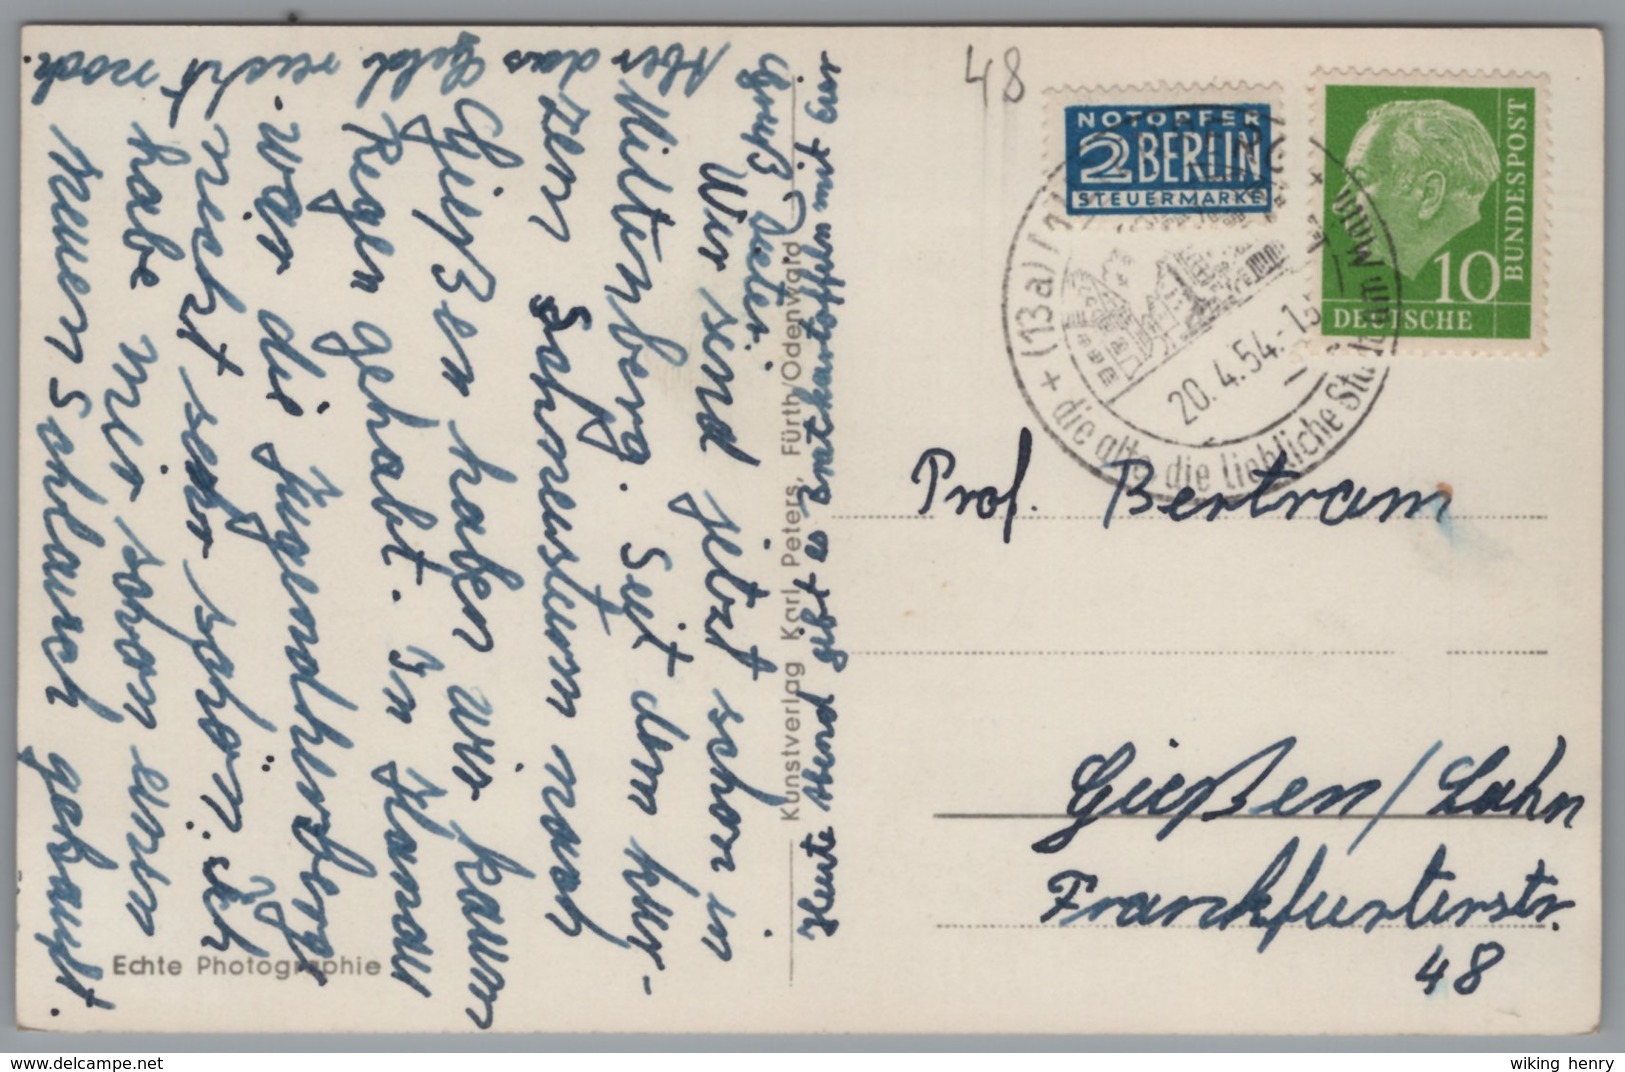 48
NOTOPFER
2 BERLIN
STEUERMARKE
BUNDESPOST
10
DEUTSCHE
(13a)
20.4.54.-13
die alte, die liebliche Stadt am Main
Prof. Bertram
Gießen/Lahn
Frankfurterstr.
48
Wir sind jetzt schon in
Miltenberg. Seit dem kur-
zen Schneesturm nach
Gießen haben wir kaum
Regen gehabt. In Hanau
war die Jugendherberge
nicht sehr schön. Ich
habe mir schon einen
neuen Schlauch gekauft.
Aber das Geld reicht noch.
Gruß Dieter.
Heute Abend gibt es Bratkartoffeln mit Eier
Kunstverlag Karl Peters, Fürth/Odenwald
Echte Photographie
wiking henry